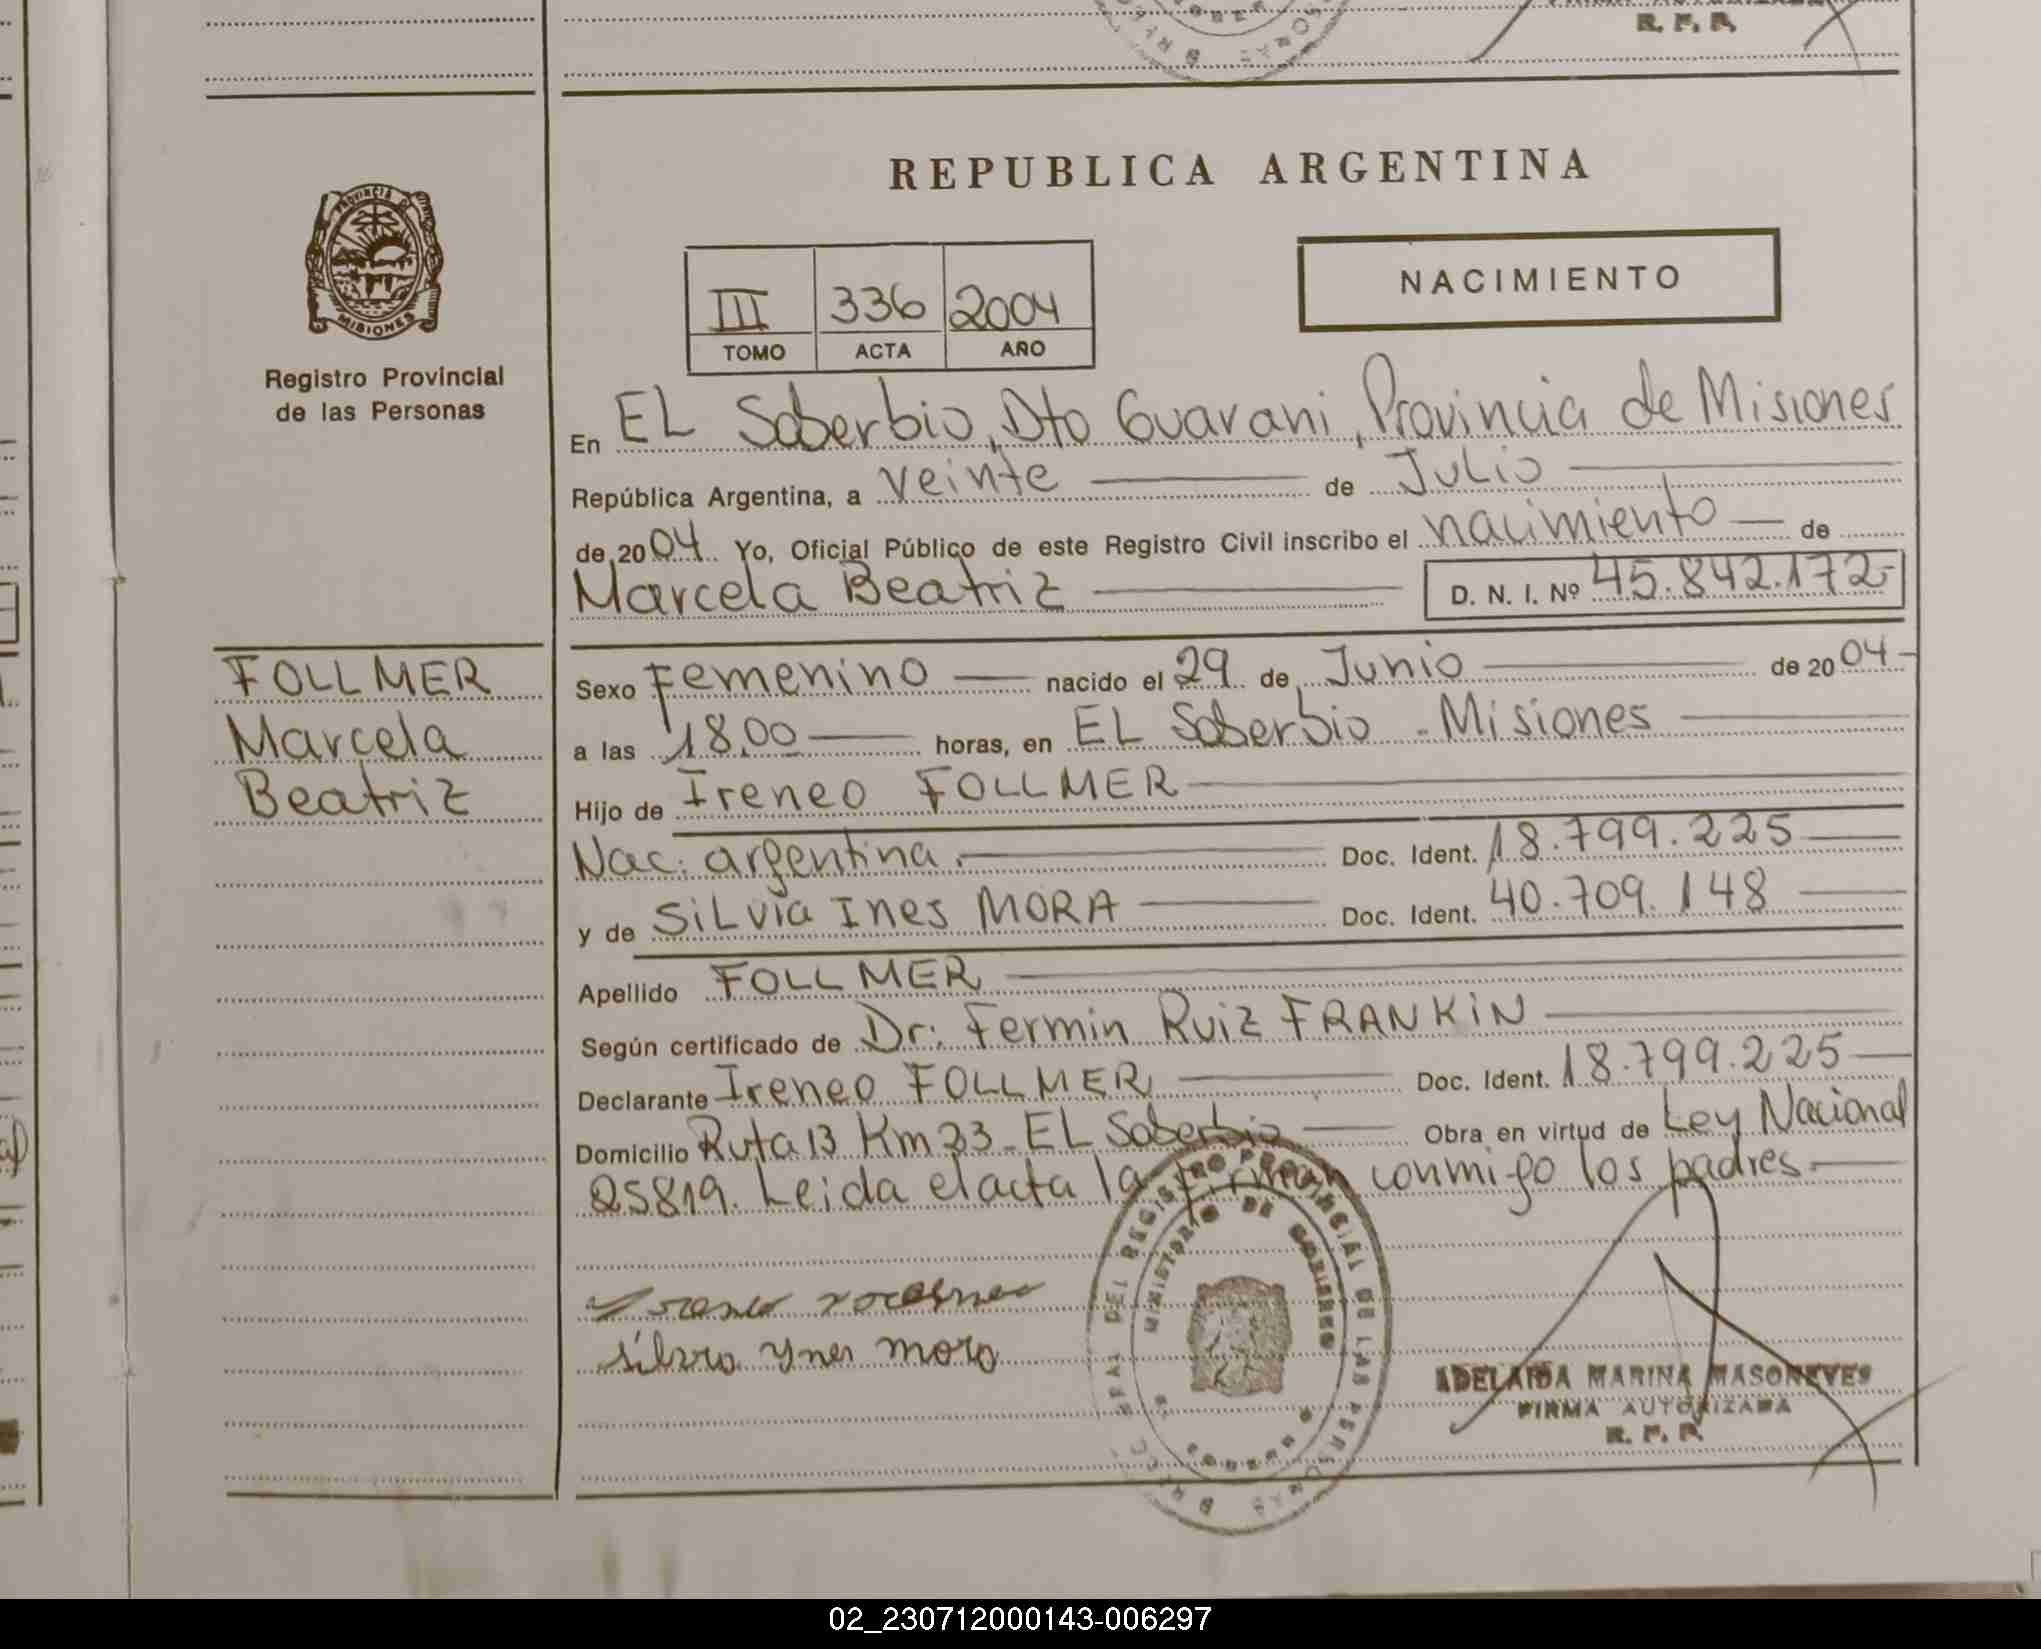 R. P. P.
REPUBLICA ARGENTINA
PROVINCIA DE
MISIONES
Registro Provincial
de las Personas
NACIMIENTO
III 336 2004
TOMO ACTA AÑO
En EL Soberbio, Dto Guarani, Provincia de Misiones
República Argentina, a veinte de Julio
de 2004 Yo, Oficial Público de este Registro Civil inscribo el nacimiento de
Marcela Beatriz D. N. I. Nº 45.842.172-
FOLLMER
Marcela
Beatriz
Sexo Femenino nacido el 29 de Junio de 2004
a las 18.00 horas, en EL Soberbio - Misiones
Hijo de Ireneo FOLLMER
Nac. argentina. Doc. Ident. 18.799.225
y de SiLvia Ines MORA Doc. Ident. 40.709.148
Apellido FOLLMER
Según certificado de Dr. Fermin Ruiz FRANKiN
Declarante Ireneo FOLLMER Doc. Ident. 18.799.225
Domicilio Ruta 13 Km 33 - EL Soberbio Obra en virtud de Ley Nacional
25819. Leida el acta la firman conmigo los padres.
DEL REGISTRO PROVINCIAL DE LAS PERSONAS
MINISTERIO DE GOBIERNO
silvia ynes mora
ADELAIDA MARINA MASONEVES
FIRMA AUTORIZADA
R. P. P.
02_230712000143-006297